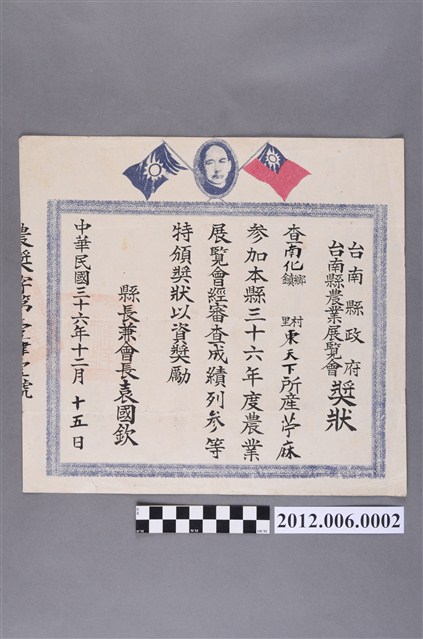 台南縣政府
台南縣農業展覽會
獎狀
查南化鄉鎮
村里東天下所產苧麻
參加本縣三十六年度農業
展覽會經審查成績列參等
特頒獎狀以資獎勵
縣長兼會長袁國欽
中華民國三十六年十二月十五日
農獎字第
號
2012.006.0002